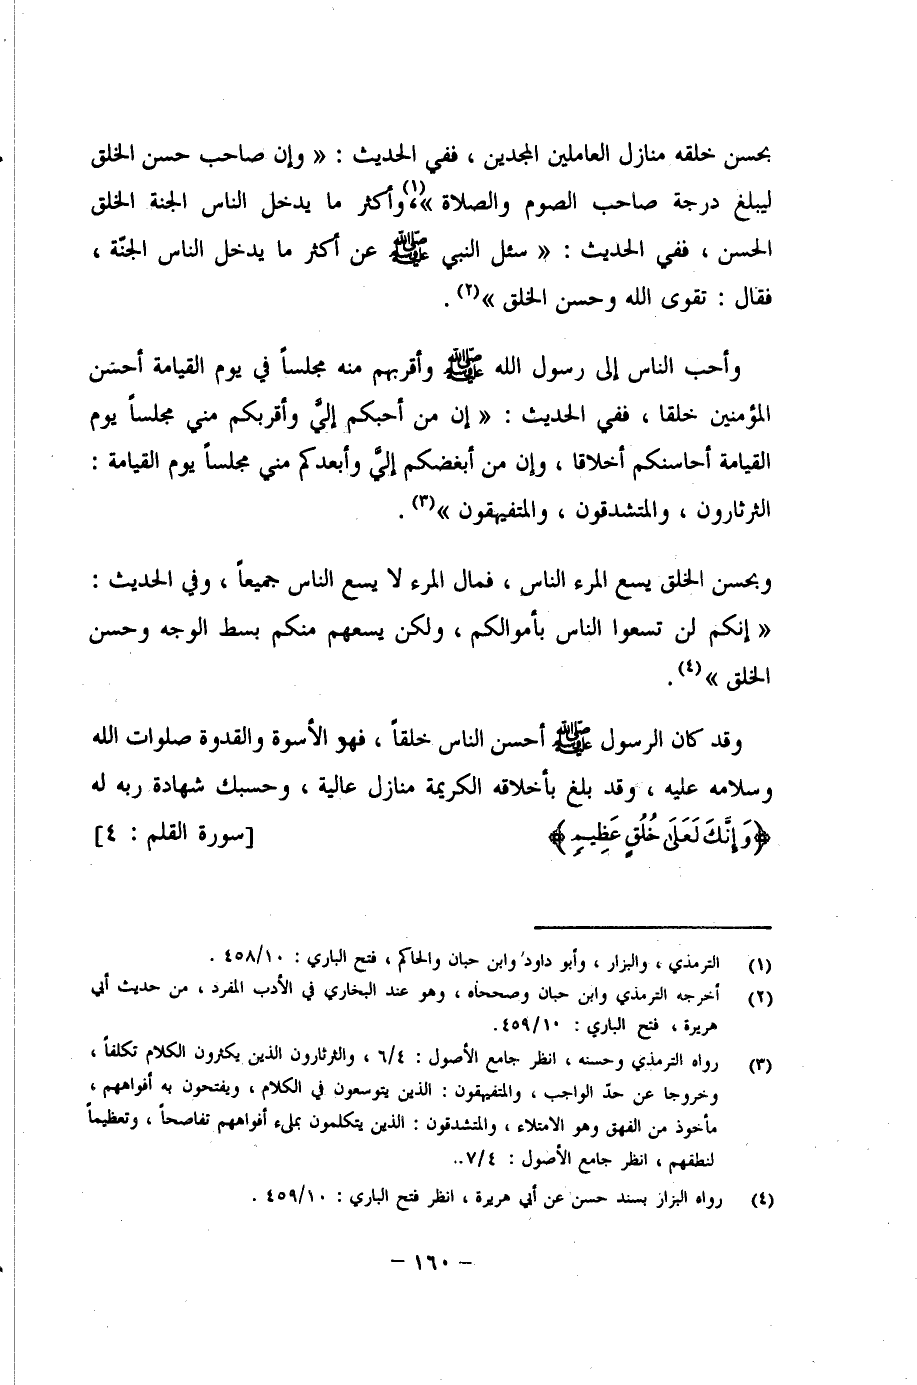 بحسن خلقه منازل العاملين المجدين ، ففي الحديث : « وإن صاحب حسن الخلق
ليبلغ درجة صاحب الصوم والصلاة »(١)، وأكثر ما يدخل الناس الجنة الخلق
الحسن ، ففي الحديث : « سئل النبي ﷺ عن أكثر ما يدخل الناس الجنّة ،
فقال : تقوى الله وحسن الخلق »(٢) .
وأحب الناس إلى رسول الله ﷺ وأقربهم منه مجلساً في يوم القيامة أحسن
المؤمنين خلقا ، ففي الحديث : « إن من أحبكم إليَّ وأقربكم مني مجلساً يوم
القيامة أحاسنكم أخلاقا ، وإن من أبغضكم إليَّ وأبعدكم مني مجلساً يوم القيامة :
الثرثارون ، والمتشدقون ، والمتفيهقون »(٣) .
وبحسن الخلق يسع المرء الناس ، فمال المرء لا يسع الناس جميعاً ، وفي الحديث :
« إنكم لن تسعوا الناس بأموالكم ، ولكن يسعهم منكم بسط الوجه وحسن
الخلق »(٤) .
وقد كان الرسول ﷺ أحسن الناس خلقاً ، فهو الأسوة والقدوة صلوات الله
وسلامه عليه ، وقد بلغ بأخلاقه الكريمة منازل عالية ، وحسبك شهادة ربه له
﴿وَإِنَّكَ لَعَلَىٰ خُلُقٍ عَظِيمٍ﴾ [سورة القلم : ٤]
(١) الترمذي ، والبزار ، وأبو داود وابن حبان والحاكم ، فتح الباري : ٤٥٨/١٠ .
(٢) أخرجه الترمذي وابن حبان وصححاه ، وهو عند البخاري في الأدب المفرد ، من حديث أبي
هريرة ، فتح الباري : ٤٥٩/١٠.
(٣) رواه الترمذي وحسنه ، انظر جامع الأصول : ٦/٤ ، والثرثارون الذين يكثرون الكلام تكلفاً ،
وخروجا عن حدّ الواجب ، والمتفيهقون : الذين يتوسعون في الكلام ، ويفتحون به أفواههم ،
مأخوذ من الفهق وهو الامتلاء ، والمتشدقون : الذين يتكلمون بملء أفواههم تفاصحاً ، وتعظيماً
لنطقهم ، انظر جامع الأصول : ٧/٤..
(٤) رواه البزار بسند حسن عن أبي هريرة ، انظر فتح الباري : ٤٥٩/١٠ .
– ١٦٠ –